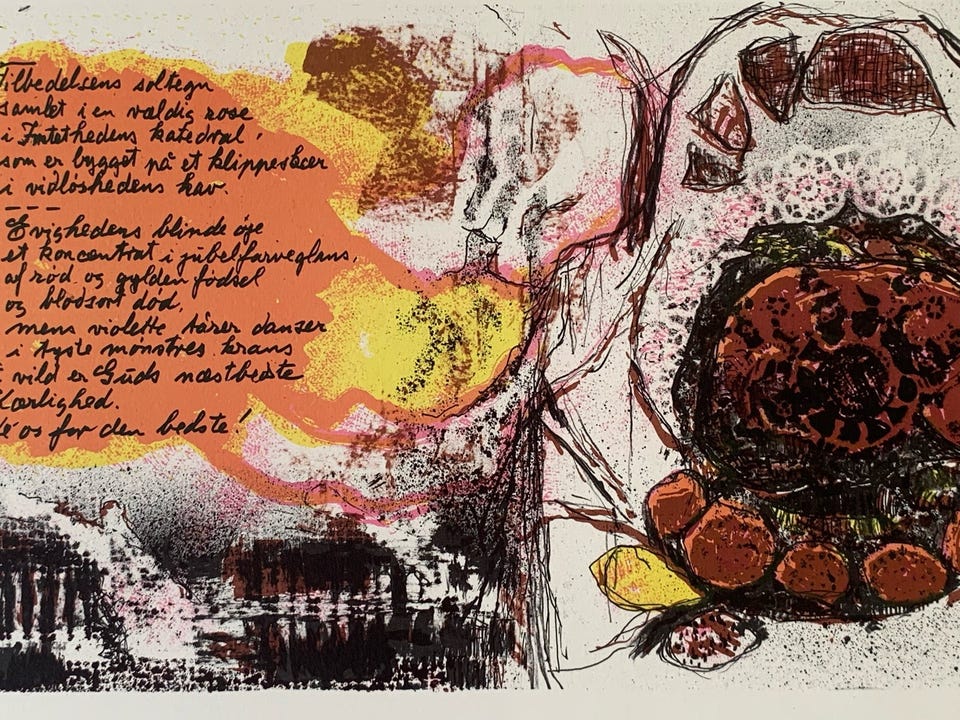 Tilbedelsens soltegn
samlet i en vældig rose
i Intethedens katedral,
som er bygget på et klippeskær
i vidløshedens hav.
———
Evighedens blinde øje
et koncentrat i jubelfarveglans,
af rød og gylden fødsel
og blodsort død,
mens violette tårer danser
i tyste mønstres krans
vild er Guds næstbedste
Kærlighed.
os for den bedste!